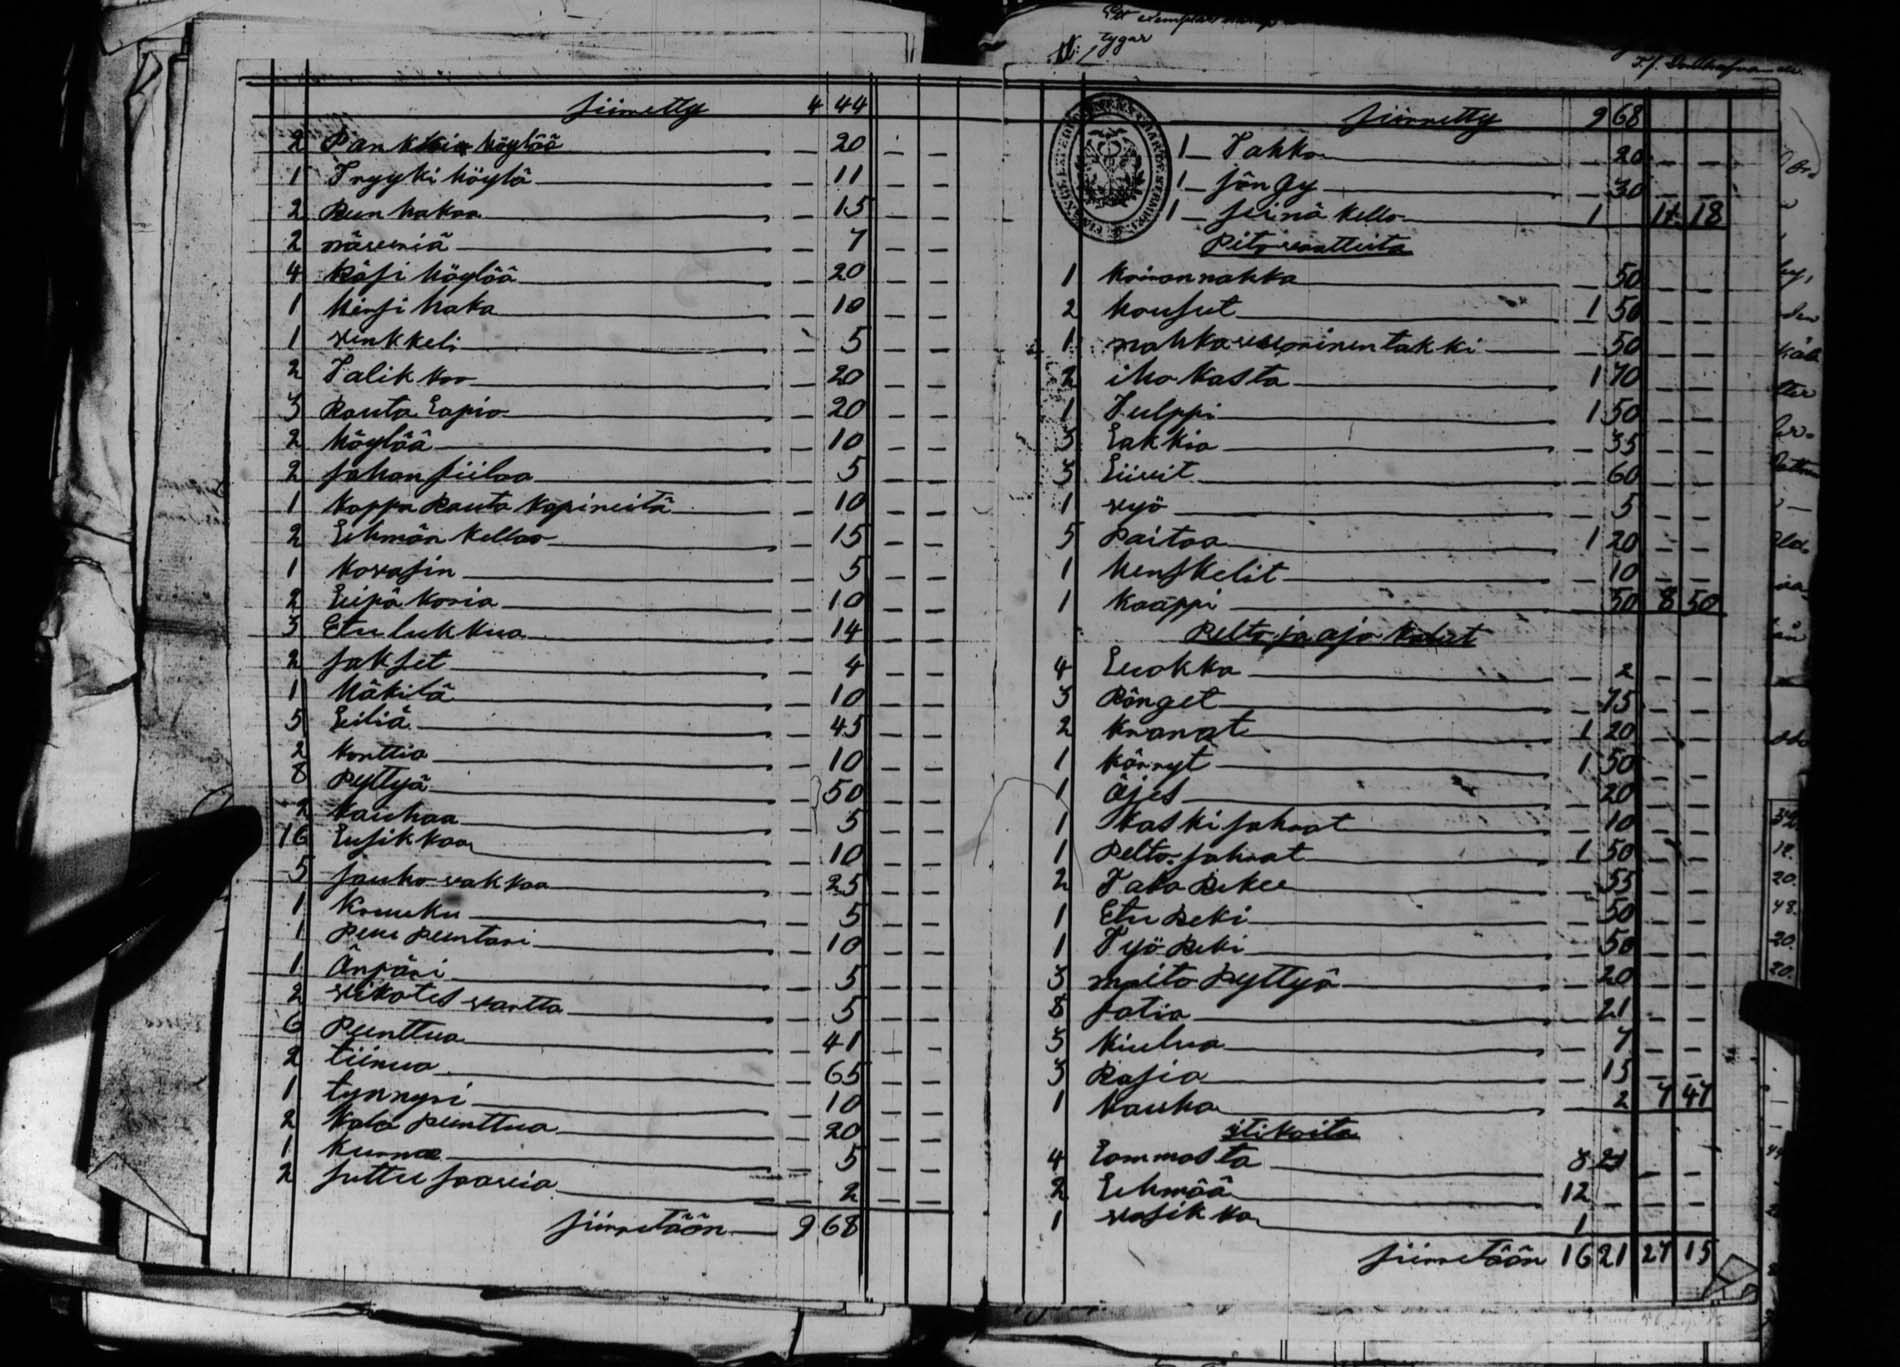 siirretty 4 44
2 Pankkia höylää — 20 — —
1 Tryyki höylä — 11 — —
2 Puu hakaa — 15 — —
2 näveriä — 7 — —
4 Käsi höylää — 20 — —
1 hirsi haka — 10 — —
1 vinkkeli — 5 — —
2 Talikkoo — 20 — —
3 Rauta Lapio — 20 — —
2 höylää — 10 — —
2 sahan siilaa — 5 — —
1 Koppa Rauta Kapineita — 10 — —
2 Lehmän kelloo — 15 — —
1 Kovasin — 5 — —
2 Leipä koria — 10 — —
3 Etu lukkua — 14 — —
2 sakset — 4 — —
1 häkilä — 10 — —
5 Leiliä — 45 — —
2 konttia — 10 — —
8 Pyttyä — 50 — —
2 Kauhaa — 5 — —
16 Lusikkaa — 10 — —
5 jauho vakkaa — 25 — —
1 Kruuku — 5 — —
1 Puu puntari — 10 — —
1 Änpäri — 5 — —
2 vikates vartta — 5 — —
6 Punttua — 41 — —
2 tiinua — 65 — —
1 tynnyri — 10 — —
2 Kala punttua — 20 — —
1 Kurna — 5 — —
2 juttu saavia — 2 — —
siirretään 9 68
Per exemplar
tygar
siirretty 9 68
1 — Tahko — 20 — —
1 — sängy — 30 — —
1 — seinä kello 1 11 18
Pito vaatteita
1 koirannahka — 50 — —
2 housut 1 50 — —
1 nahkavuorinen takki — 50 — —
2 iho kasta 1 70 — —
1 Tulppi 1 50 — —
3 Lakkia — 35 — —
3 Liivit — 60 — —
1 vyö — 5 — —
5 Paitaa 1 20 — —
1 henskelit — 10 — —
1 Kaappi 50 8 50
Pelto ja ajo kalut
4 Luokka — 2 — —
3 Ränget — 15 — —
2 kranat 1 20 — —
1 kärryt 1 50 — —
1 äjes — 20 — —
1 Kaski sahrat — 10 — —
1 Pelto sahrat 1 50 — —
2 Tava Rekee — 55 — —
1 Etu Reki — 50 — —
1 Työ Reki — 50 — —
3 maito Pyttyä — 20 — —
8 satia — 21 — —
3 kiulua — 7 — —
3 Rasia — 15 — —
1 kauha — 2 7 47
itikoita
4 Lammasta 3 21 — —
2 Lehmää 12 — — —
1 vasikka 1
siirretään 16 21 27 15